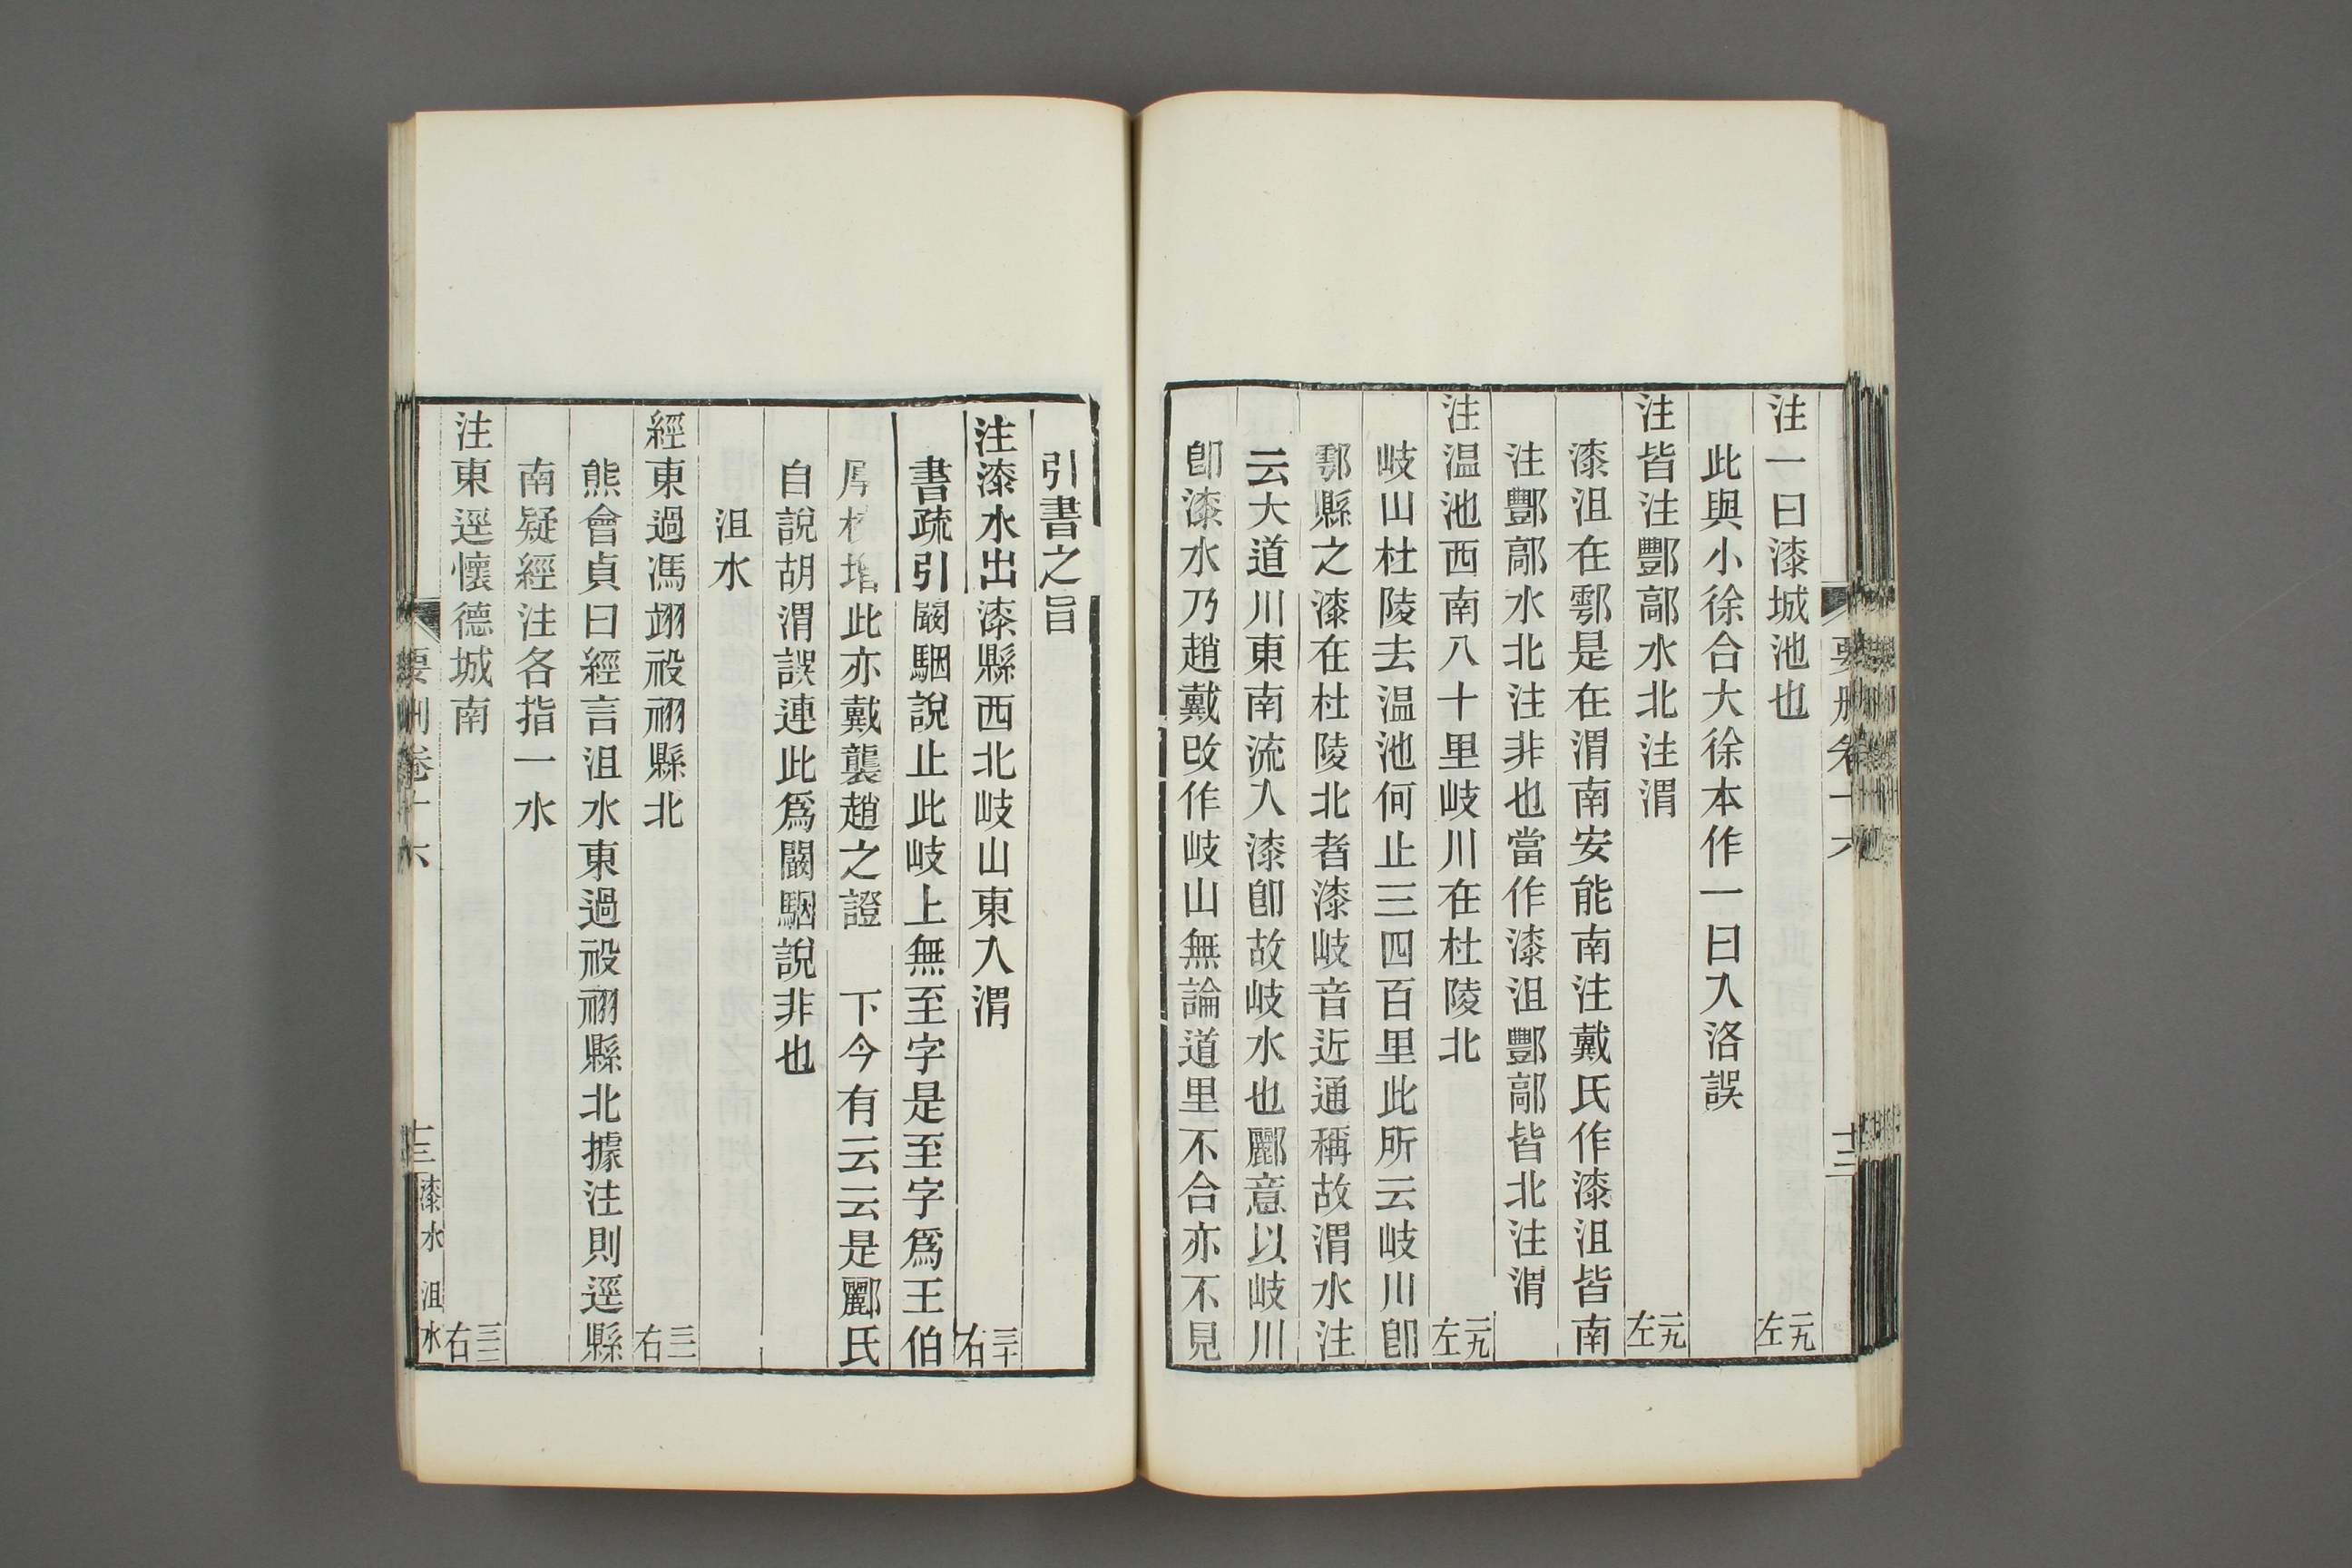 注一曰漆城池也 二九左
此與小徐合大徐本作一曰入洛誤
注皆注酆鄗水北注渭 二九左
漆沮在鄠是在渭南安能南注戴氏作漆沮皆南
注酆鄗水北注非也當作漆沮酆鄗皆北注渭
注温池西南八十里岐川在杜陵北 二九左
岐山杜陵去温池何止三四百里此所云岐川卽
鄠縣之漆在杜陵北者漆岐音近通稱故渭水注
云大道川東南流入漆卽故岐水也酈意以岐川
卽漆水乃趙戴改作岐山無論道里不合亦不見
引書之旨
注漆水出漆縣西北岐山東入渭 三十右
書疏引闞駰說止此岐上無至字是至字爲王伯
厚校增此亦戴襲趙之證　下今有云云是酈氏
自說胡渭誤連此爲闞駰說非也
沮水
經東過馮翊祋祤縣北 三一右
熊會貞曰經言沮水東過祋祤縣北據注則逕縣
南疑經注各指一水
注東逕懷德城南 三二右
要刪卷十六
十三
漆水 沮水